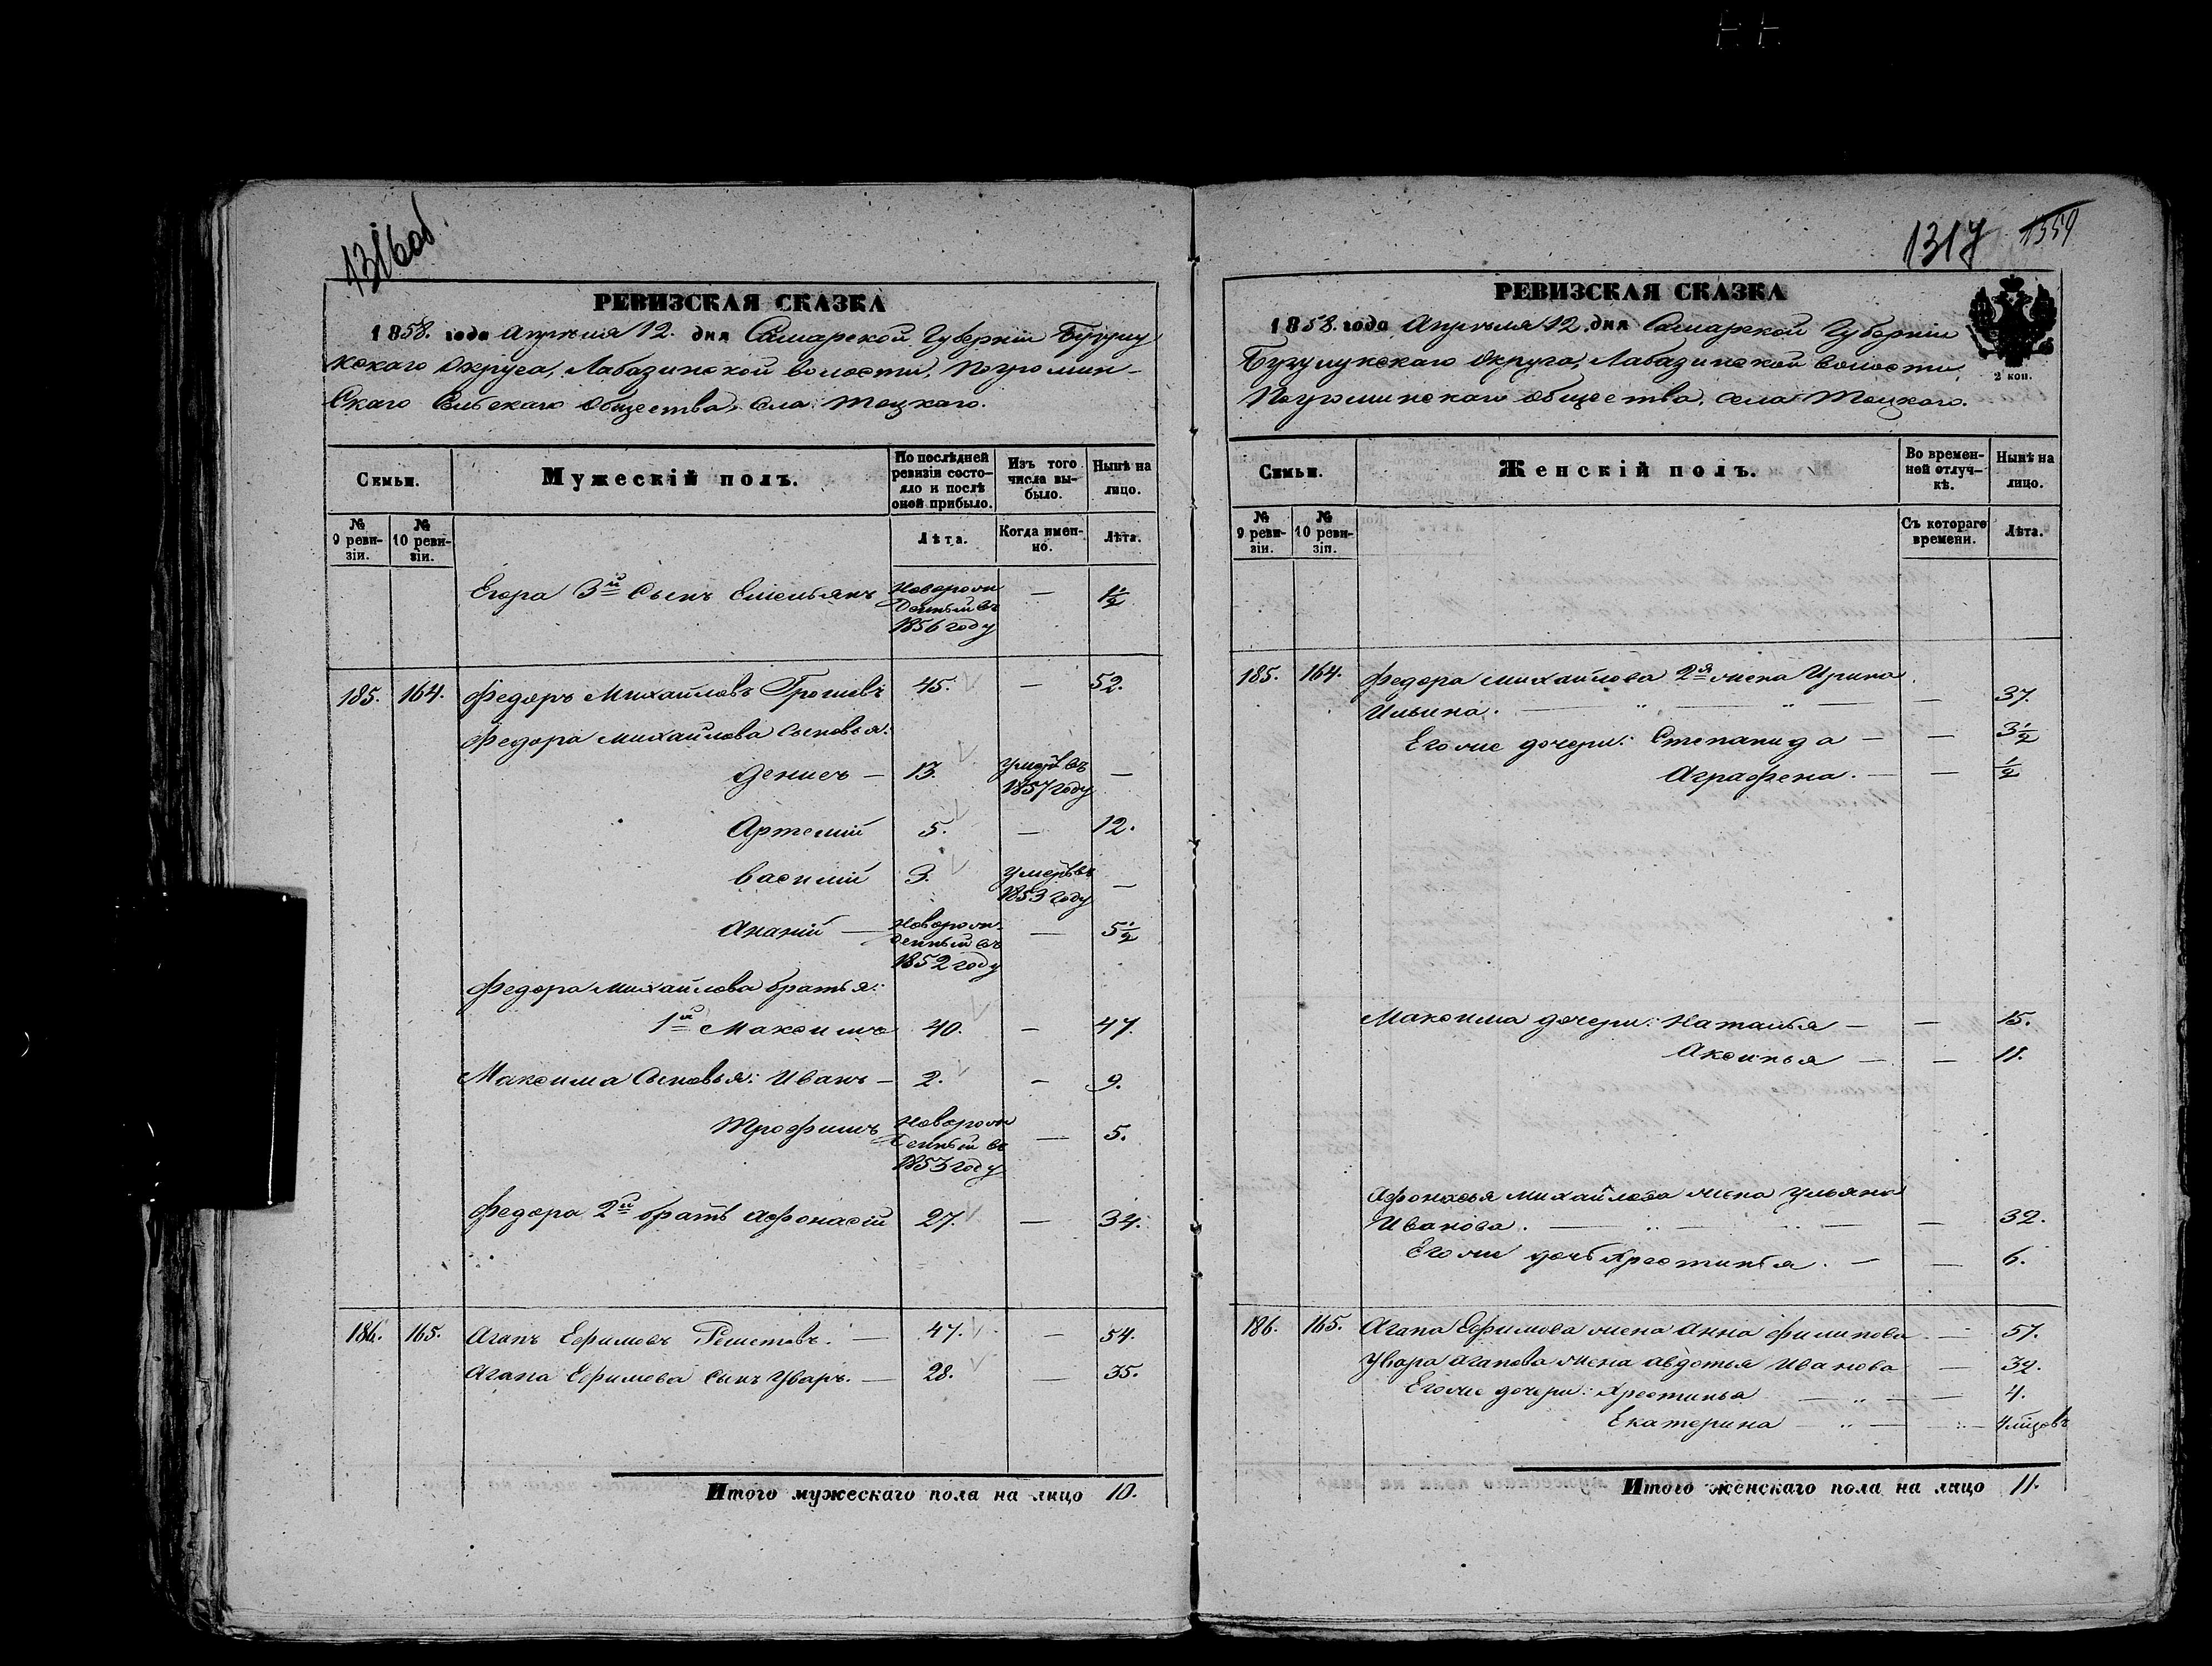 1316об.
РЕВИЗСКАЯ СКАЗКА
1858. года Апрѣля 12. дня Самарской Губерніи Бузулу
кскаго Округа, Лабазинской волости, Погромин-
Скаго Сельскаго Общества, села Тоцкаго.
Семьи. Мужескій полъ. По послѣдней ревизіи состо-яло и послѣ оной прибыло. Изъ того числа вы-было. Нынѣ на лицо.
№ 9 реви-зіи. № 10 реви-зіи. Лѣта. Когда имен-но. Лѣта.
Егора 3й Сынъ Емельянъ Новорож денный въ 1856 году — 1½
185. 164. Федоръ Михайловъ 45. — 52.
Федора Михайлова Сыновья:
Денисъ — 13. умеръ въ 1857 году —
Артемій 5. — 12.
Василій 3. умеръ въ 1853 году —
Ананій — Новорож-денный въ 1852 году — 5½
Федора Михайлова братья:
1й Максимъ 40. — 47.
Максима Сыновья: Иванъ — 2. — 9.
Трофимъ Новорож денный въ 1853 году — 5.
Федора 2й братъ Афонасій 27. — 34.
186. 165. Агапъ Ефимовъ Решетовъ. — 47. — 54.
Агапа Ефимова сынъ Уваръ. — 28. — 35.
Итого мужескаго пола на лицо 10.
1317 1554
РЕВИЗСКАЯ СКАЗКА
1858. года Апрѣля 12. дня Самарской Губерніи
Бузулукскаго Округа, Лабазинской волости,
Погроминскаго Общества, села Тоцкаго.
2 коп.
Семьи. Женскій полъ. Во времен-ной отлуч-кѣ. Нынѣ на лицо.
№ 9 реви-зіи. № 10 реви-зіи. Съ котораго времени. Лѣта.
185. 164. Федора Михайлова 2я жена Ирина
Ильина. — " — " — — 37.
Его же дочери: Степанида — — 3½
Аграфена. — — ½
Максима дочери: Наталья — — 15.
Аксинья — — 11.
Афонасья Михайлова жена Ульяна
Иванова. — " — " — — 32.
Его же дочь Хрестинья. — — 6.
186. 165. Агапа Ефимова жена Анна Филипова — 57.
Увара Агапова жена Авдотья Иванова — 32.
Его же дочери: Хрестинья — " — — 4.
Екатерина — " — " — 4 мѣсяцовъ
Итого женскаго пола на лицо 11.